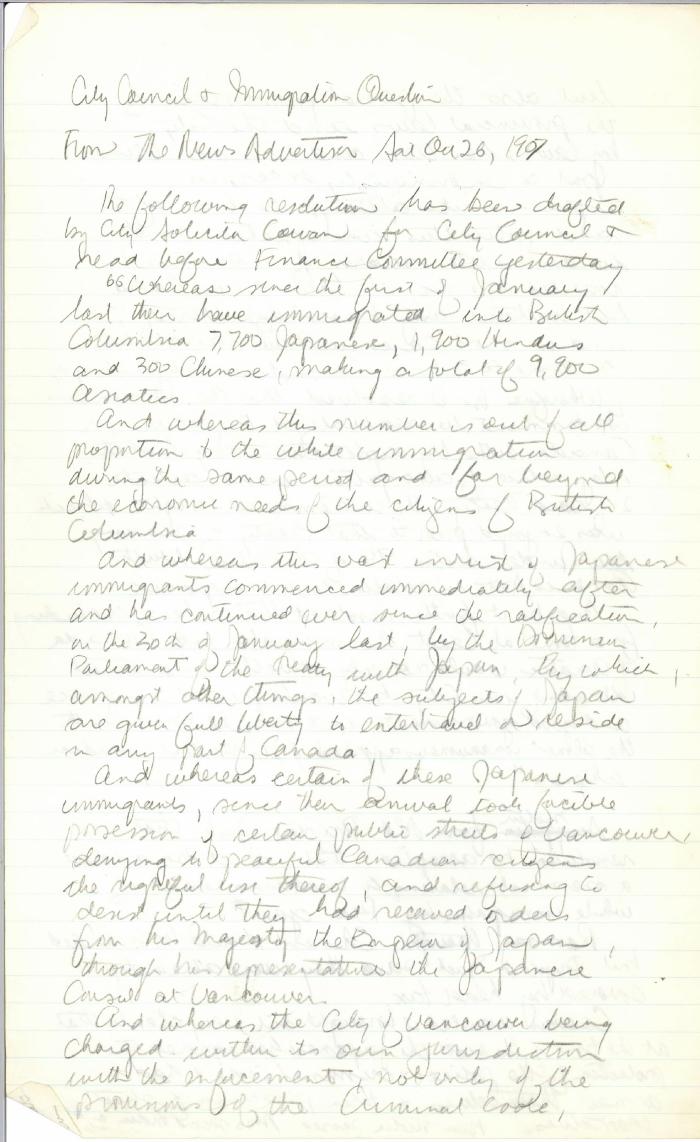 City Council & Immigration Question
From The News Advertiser Sat Oct 26, 1907
The following resolution has been drafted
by City Solicitor Cowan for City Council &
read before Finance Committee yesterday
"Whereas since the first of January
last there have immigrated into British
Columbia 7,700 Japanese, 1,900 Hindus
and 300 Chinese, making a total of 9,900
Asiatics
And whereas this number is out of all
proportion to the white immigration
during the same period and far beyond
the economic needs of the citizens of British
Columbia
And whereas this vast influx of Japanese
immigrants commenced immediately after
and has continued ever since the ratification,
on the 30th of January last, by the Dominion
Parliament of the treaty with Japan, by which,
amongst other things, the subjects of Japan
are given full liberty to enter travel or reside
in any part of Canada
And whereas certain of these Japanese
immigrants, since their arrival took forcible
possession of certain public streets of Vancouver,
denying to peaceful Canadian citizens
the rightful use thereof, and refusing to
desist until they had received orders
from his Majesty the Emperor of Japan,
through his representative the Japanese
Consul at Vancouver.
And whereas the City of Vancouver being
charged within its own jurisdiction
with the enforcement, not only of the
provisions of the Criminal Code,